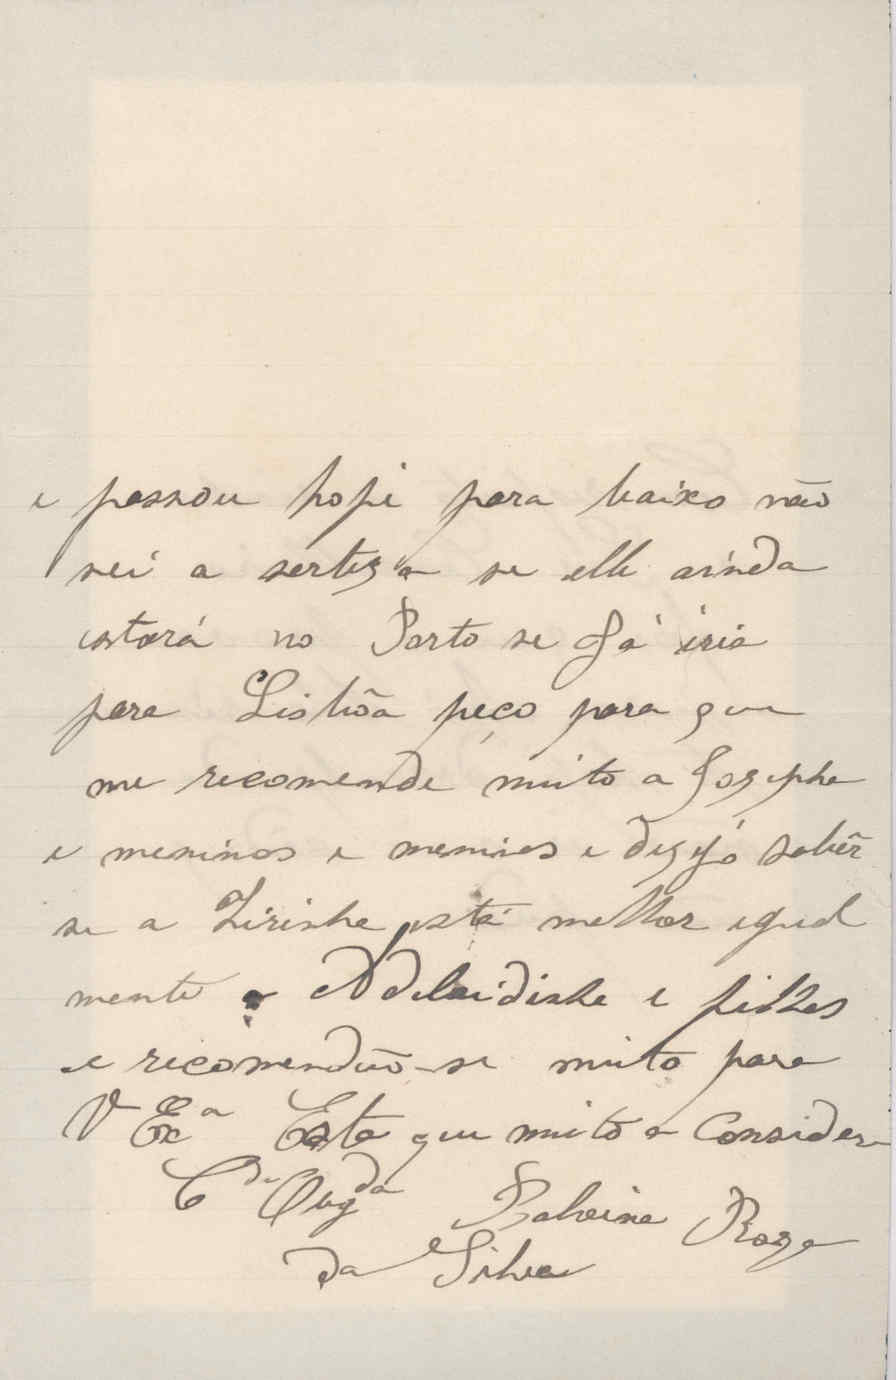 e passou hoje para baixo não
sei a sertesa se elle ainda
estará no Porto se já iria
para Lisbôa peço para que
me recomende muito a Josepha
e meninos e meninas e desejo saber
se a Zirinha está melhor egual
mente a Adelaidinha e filhos
e recomendão-se muito para
V Exª Esta que muito a Consider
Cde Obgda Balvina Roza
da Silva